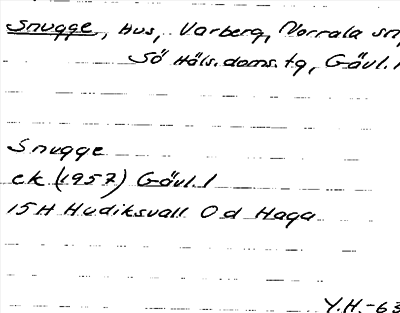 Snugge, Hus, Varberg, Norrala sn,
Sö Häls. doms. tg, Gävl. l
Snugge
ek (1957) Gävl. l
15H Hudiksvall 0d Haga
Y.H.-63